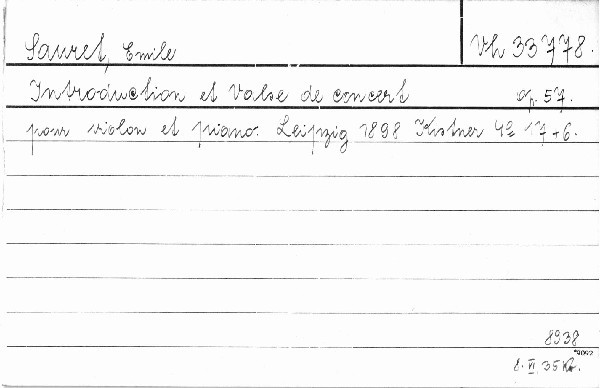 Sauret, Emile Vh 33778.
Introduction et Valse de concert op. 57.
pour violon et piano. Leipzig 1898 Kistner 4º 17+6.
8938
8. VI. 35